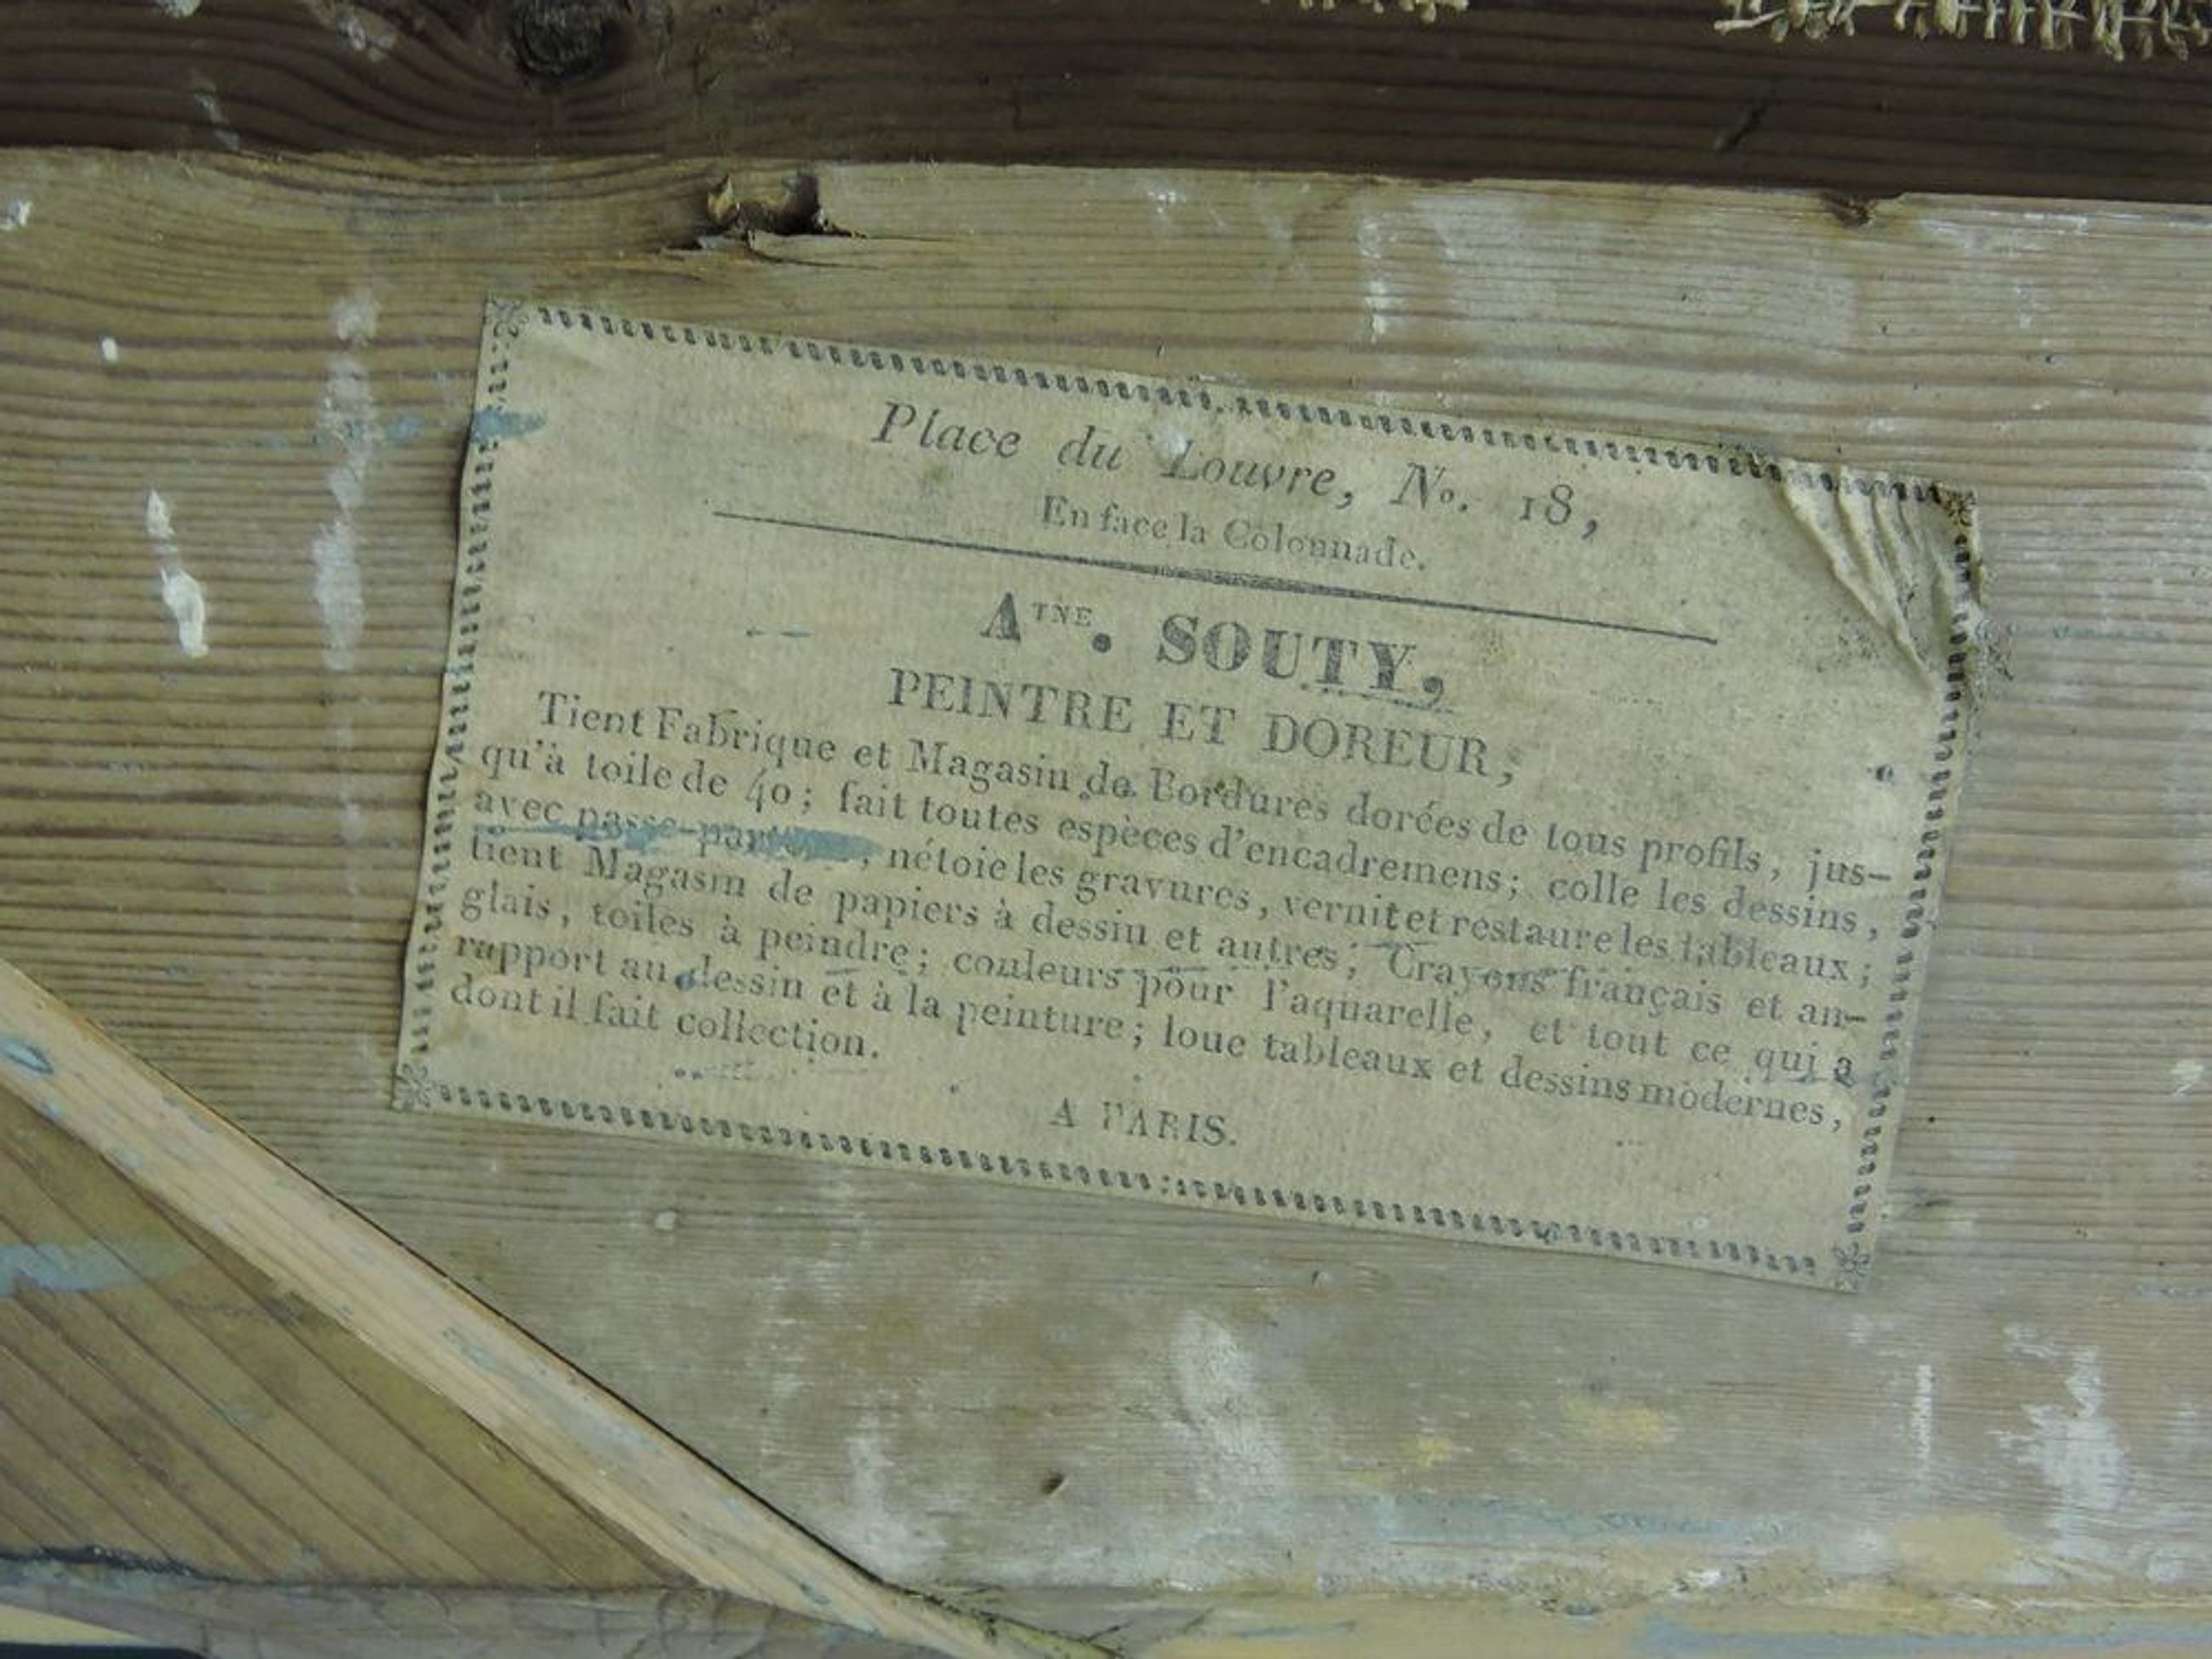 Place du Louvre, No. 18,
En face la Colonnade.
Atne. SOUTY,
PEINTRE ET DOREUR,
Tient Fabrique et Magasin de Bordures dorées de tous profils, jus-
qu'à toile de 40; fait toutes espèces d'encadremens; colle les dessins,
avec , nétoie les gravures, vernit et restaure les tableaux;
tient Magasin de papiers à dessin et autres; Crayons français et an-
glais, toiles à peindre; couleurs pour l'aquarelle, et tout ce qui a
rapport au dessin et à la peinture; loue tableaux et dessins modernes,
dont il fait collection.
A PARIS.